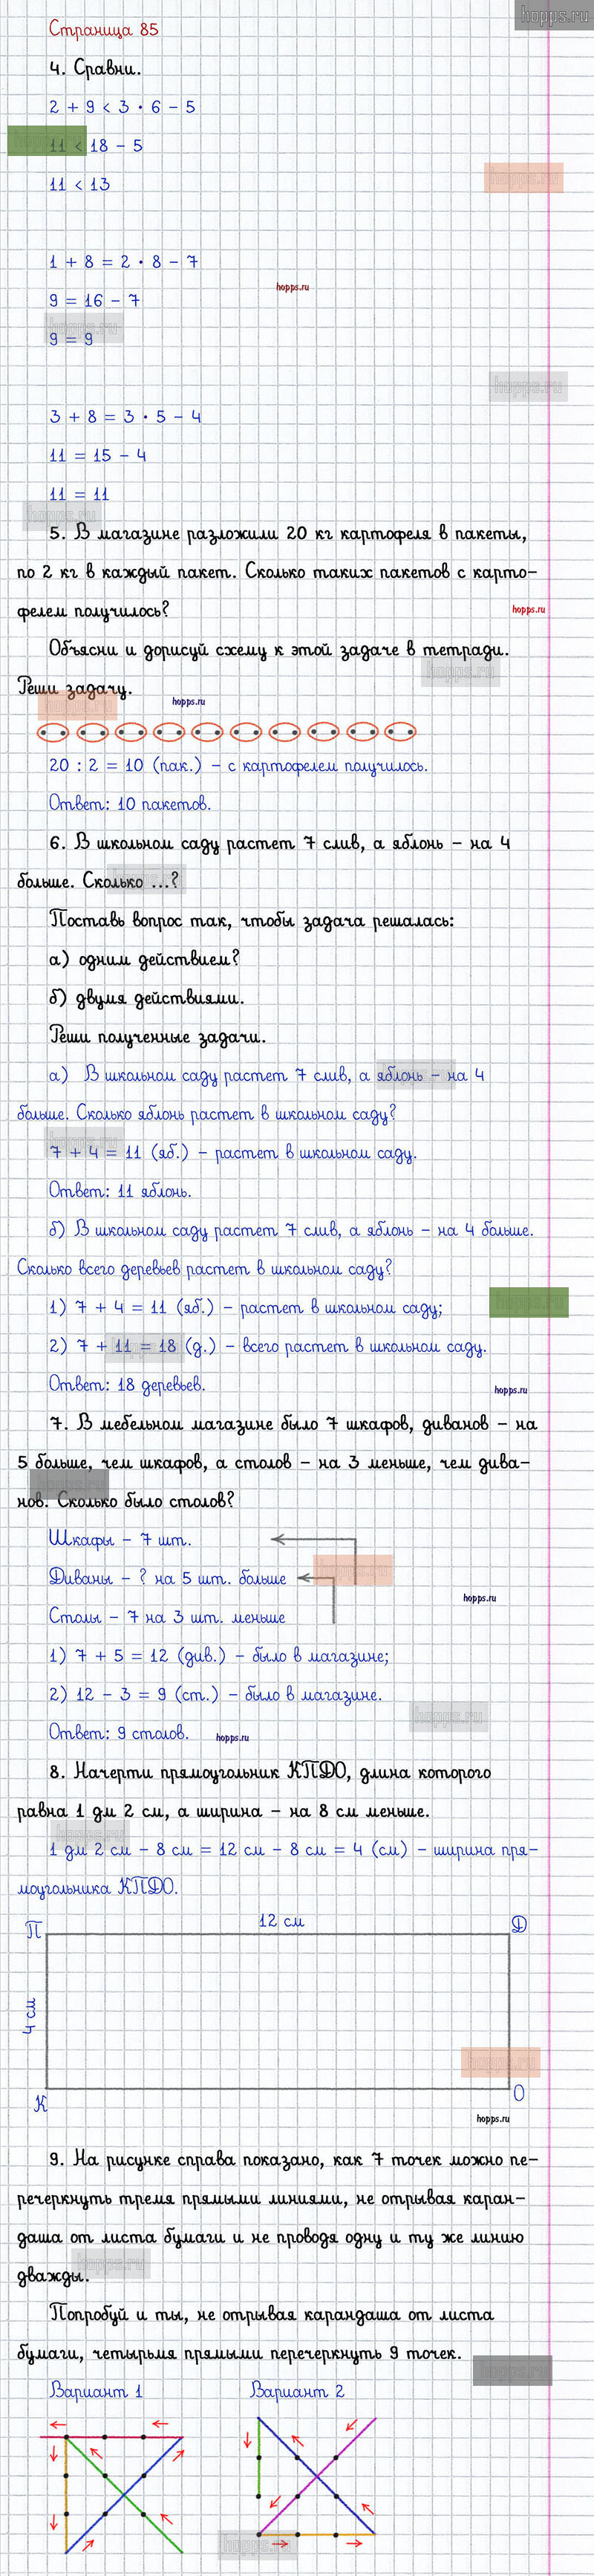 hopps.ru
Страница 85
4. Сравни.
2 + 9 < 3 · 6 – 5
11 < 18 – 5
11 < 13
hopps.ru
1 + 8 = 2 · 8 – 7
hopps.ru
9 = 16 – 7
9 = 9
hopps.ru
3 + 8 = 3 · 5 – 4
11 = 15 – 4
11 = 11
hopps.ru
5. В магазине разложили 20 кг картофеля в пакеты,
по 2 кг в каждый пакет. Сколько таких пакетов с карто–
фелем получилось?
hopps.ru
Объясни и дорисуй схему к этой задаче в тетради.
hopps.ru
Реши задачу.
hopps.ru
20 : 2 = 10 (пак.) – с картофелем получилось.
Ответ: 10 пакетов.
6. В школьном саду растет 7 слив, а яблонь – на 4
больше. Сколько ...?
Поставь вопрос так, чтобы задача решалась:
а) одним действием?
б) двумя действиями.
Реши полученные задачи.
а) В школьном саду растет 7 слив, а яблонь – на 4
больше. Сколько яблонь растет в школьном саду?
7 + 4 = 11 (яб.) – растет в школьном саду.
Ответ: 11 яблонь.
б) В школьном саду растет 7 слив, а яблонь – на 4 больше.
Сколько всего деревьев растет в школьном саду?
1) 7 + 4 = 11 (яб.) – растет в школьном саду;
hopps.ru
2) 7 + 11 = 18 (д.) – всего растет в школьном саду.
Ответ: 18 деревьев.
hopps.ru
7. В мебельном магазине было 7 шкафов, диванов – на
5 больше, чем шкафов, а столов – на 3 меньше, чем дива–
нов. Сколько было столов?
Шкафы – 7 шт.
Диваны – ? на 5 шт. больше
hopps.ru
hopps.ru
Столы – ? на 3 шт. меньше
1) 7 + 5 = 12 (див.) – было в магазине;
2) 12 – 3 = 9 (ст.) – было в магазине.
hopps.ru
Ответ: 9 столов.
hopps.ru
8. Начерти прямоугольник КПДО, длина которого
равна 1 дм 2 см, а ширина – на 8 см меньше.
hopps.ru
1 дм 2 см – 8 см = 12 см – 8 см = 4 (см) – ширина пря–
моугольника КПДО.
П
12 см
Д
4 см
hopps.ru
К
О
hopps.ru
9. На рисунке справа показано, как 7 точек можно пе–
речеркнуть тремя прямыми линиями, не отрывая каран–
даша от листа бумаги и не проводя одну и ту же линию
дважды.
hopps.ru
Попробуй и ты, не отрывая карандаша от листа
бумаги, четырьмя прямыми перечеркнуть 9 точек.
hopps.ru
Вариант 1
Вариант 2
hopps.ru